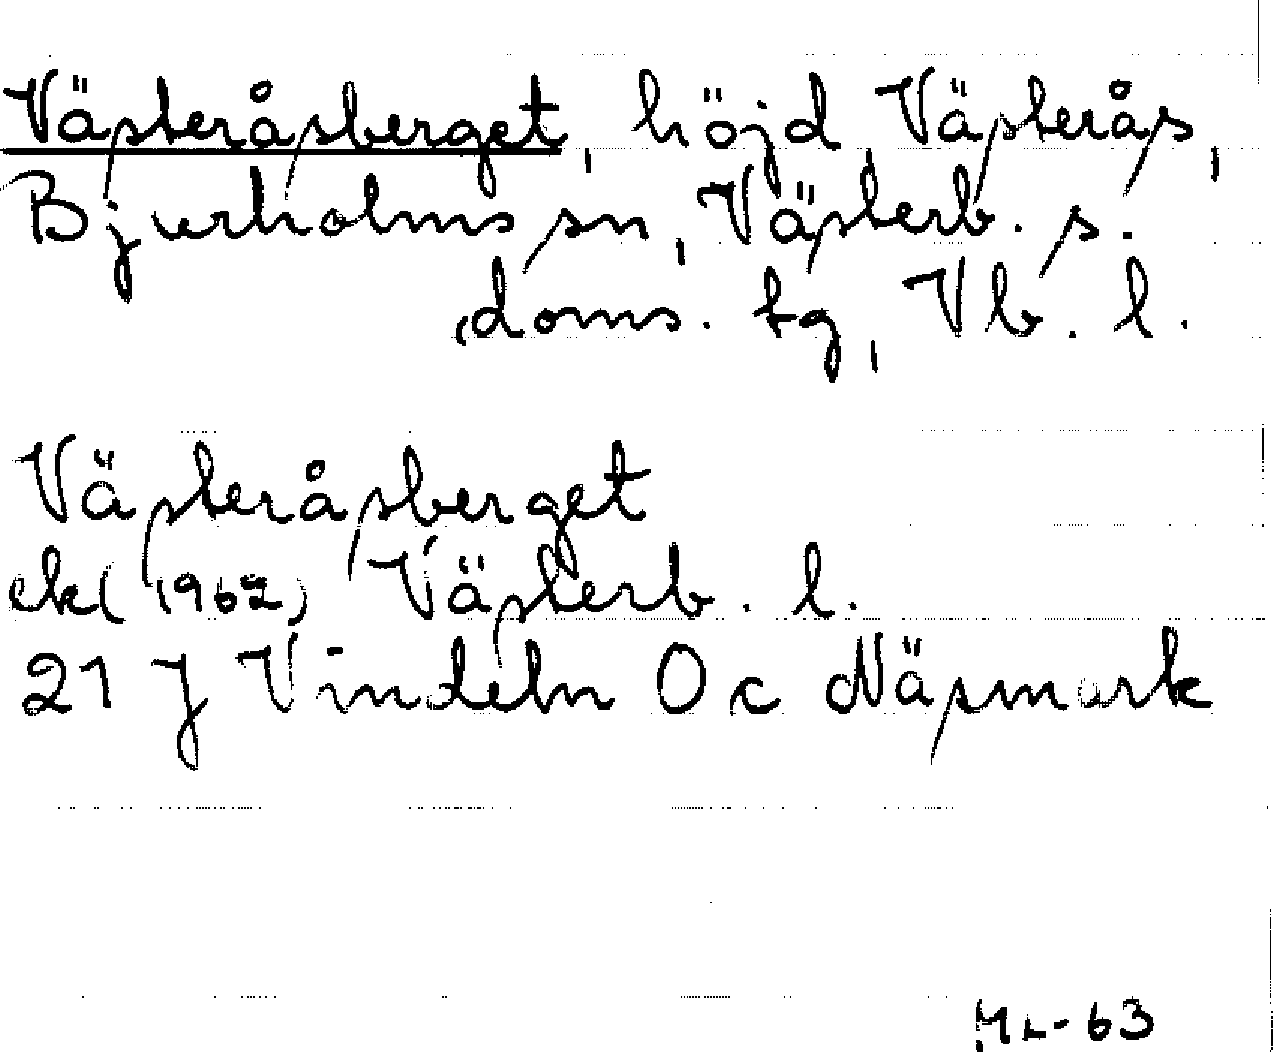 Västeråsberget, höjd Västerås,
Bjurholms sn, Västerb. s.
doms. tg, Vb. l.
Västeråsberget
ek (1962) Västerb. l.
21 J Vindeln 0 c Näsmark
ML-63